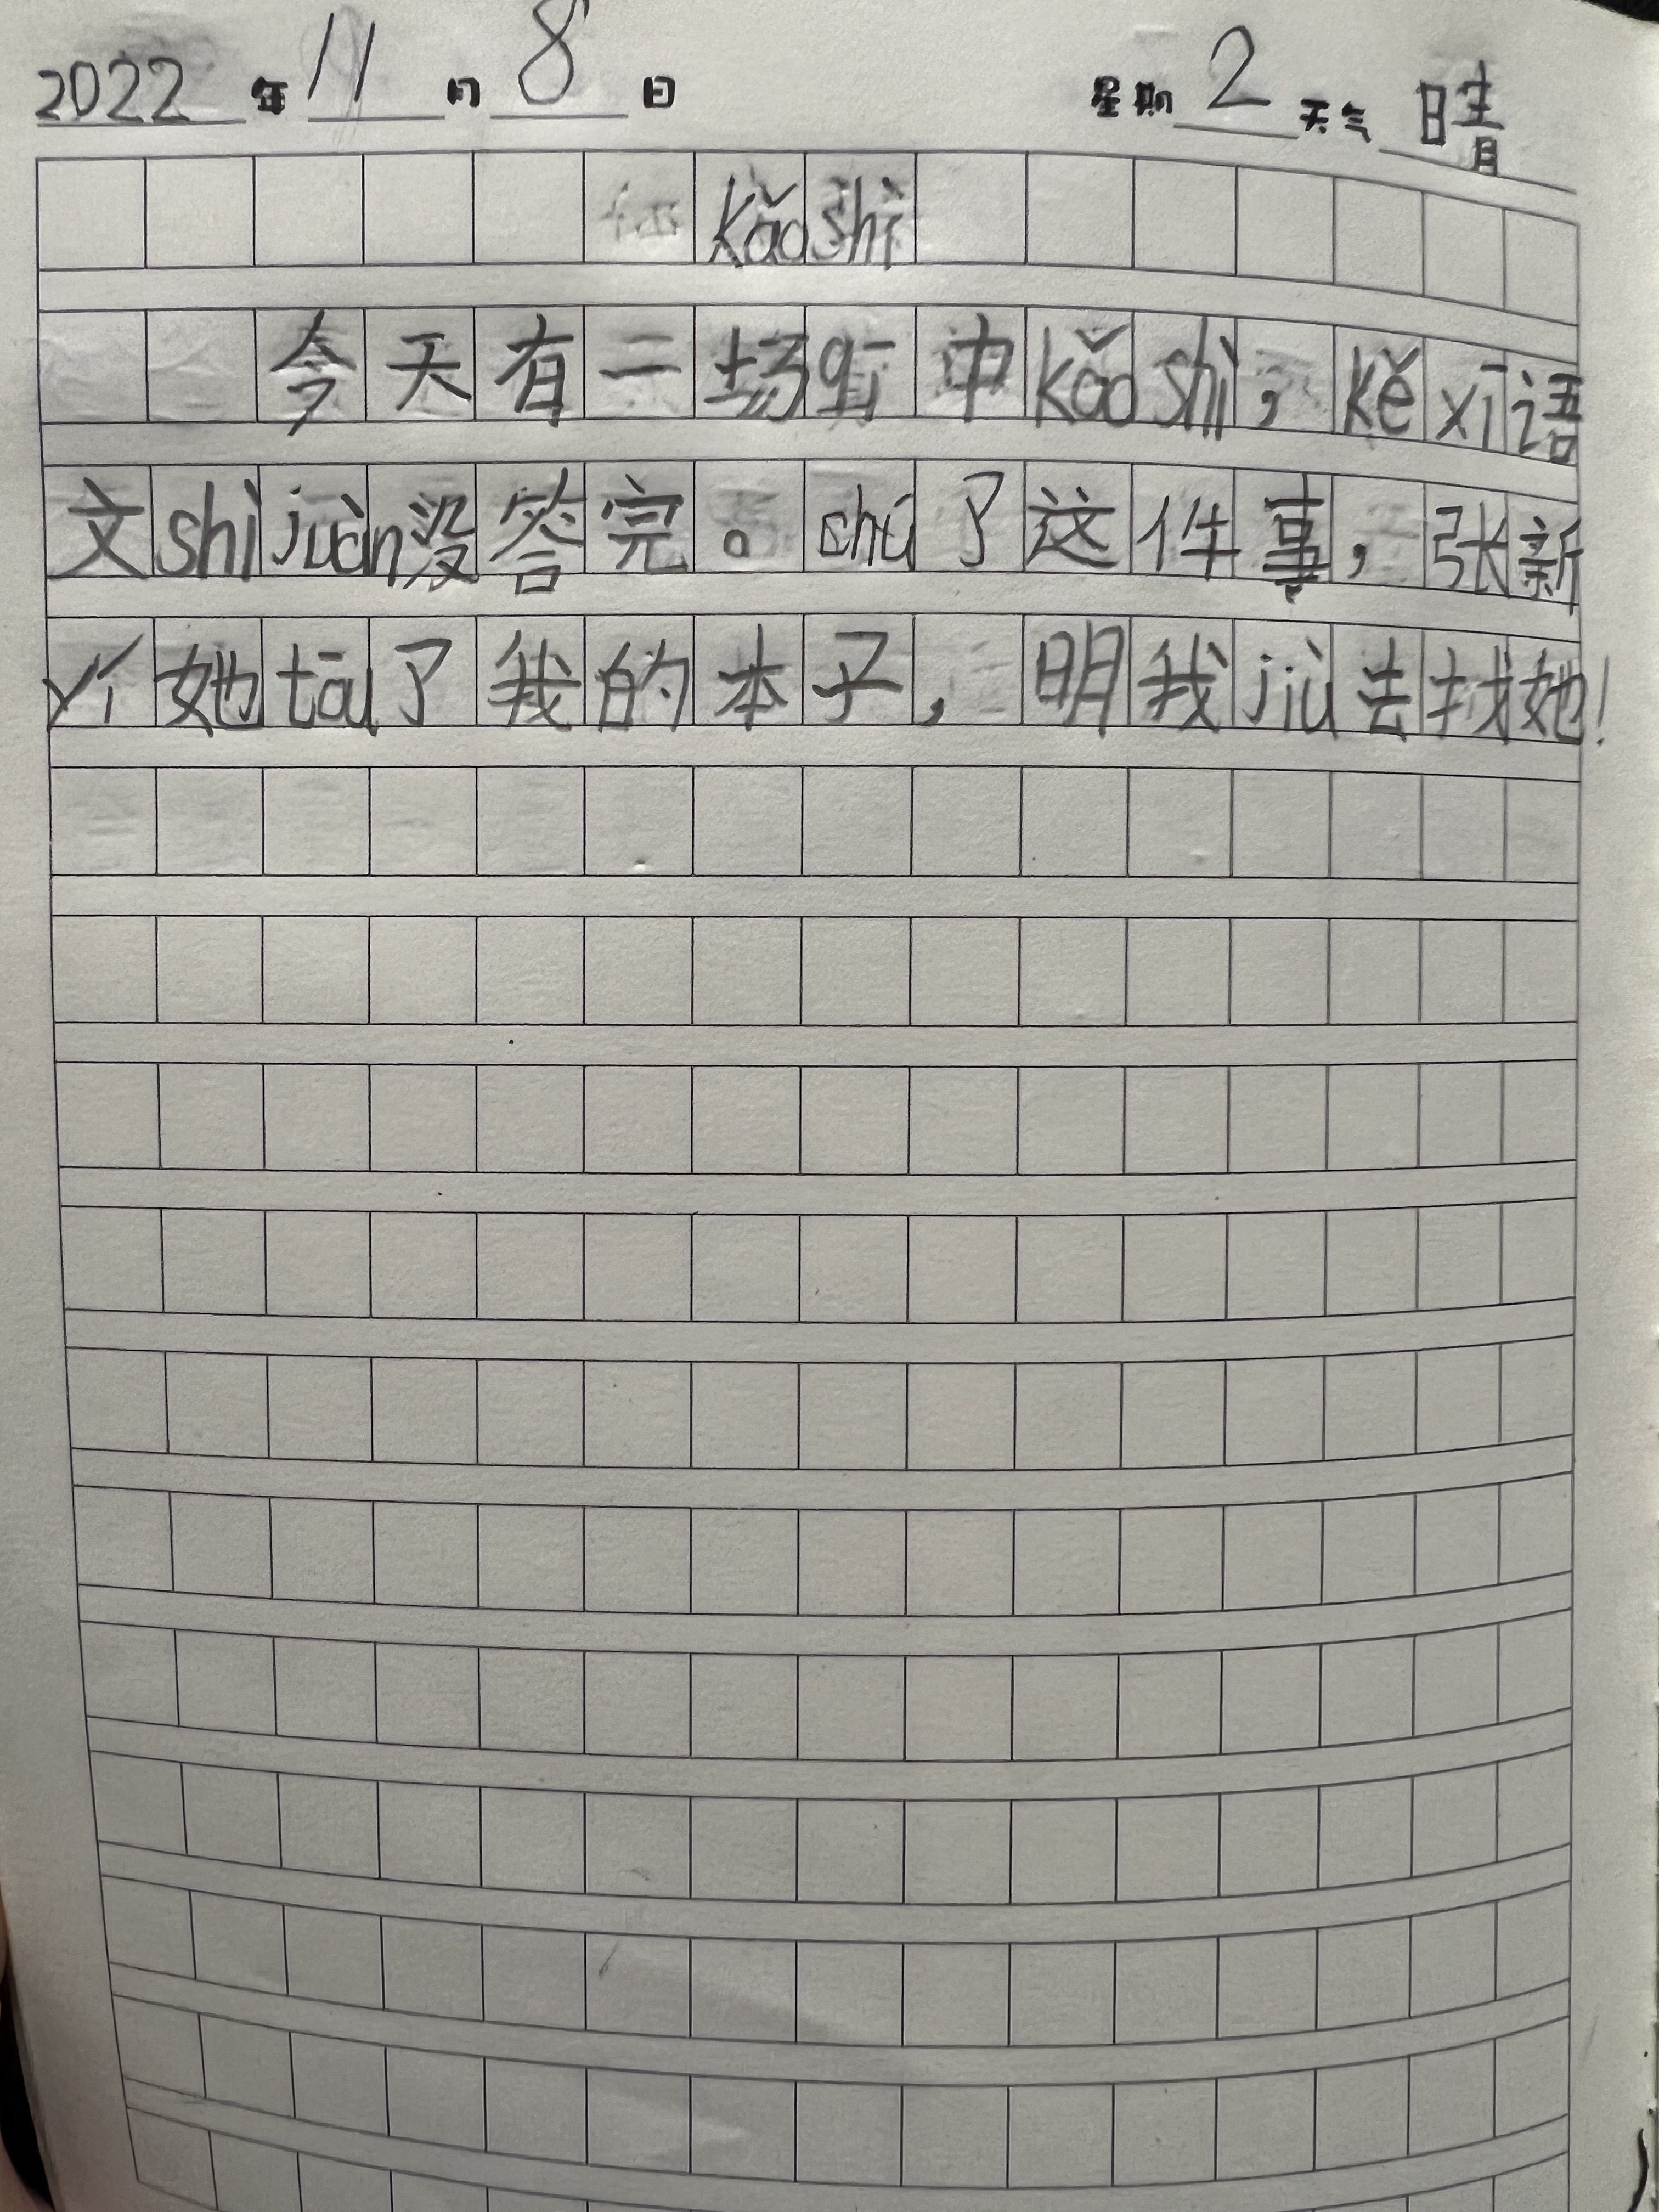 2022年11月8日 星期2天气晴
kǎoshì
今天有二场qī中kǎoshì，kěxī语
文shìjuàn没答完。chú了这件事，张新
yí她tōu了我的本子，明我jiù去找她！